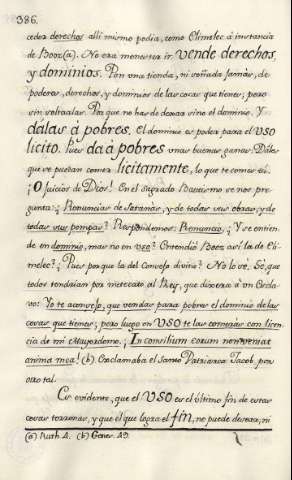 386.
ceder derechos allí mismo podía, como Elimelec á instancia
de Booz (a). No era menester ir, vende derechos,
y dominios. Pon una tienda, ni soñada jamás, de
poderes, derechos, y dominios de las cosas que tienes; pero
sin soltarlas. Pa que no has de dexar sino el dominio. Y
dálas á pobres. El dominio es poder para el USO
licito. Pues da á pobres unas buenas ganas. Díles
que se puedan comer licitamente, lo que te comes tú.
¡O Juicios de Dios! En el Sagrado Bautismo se nos pre-
gunta: ¿Renuncias de Satanás, y de todas sus obras, y de
todas sus pompas? Respondemos: Renuncio. ¿Y se entien-
de en dominio, mas no en uso? Entendió Booz así la de Eli-
melec? ¿Pues por que la del Consejo divino? No lo vé. Sé, que
todos tendrían por mentecato al Rey, que dixera á un Escla-
vo: Yo te aconsejo, que vendas para pobres el dominio de las
cosas que tienes; pero luego en USO te las comerás con licen-
cia de mi Mayordomo. ¡In consilium eorum non veniat
anima mea! (b). Exclamaba el Santo Patriarca Jacob, por
otro tal.
Es evidente, que el USO es el último fin de estas
cosas terrenas, y que el que logra el fin, no puede desear, ni
(a) Ruth 4. (b) Genes. 49.